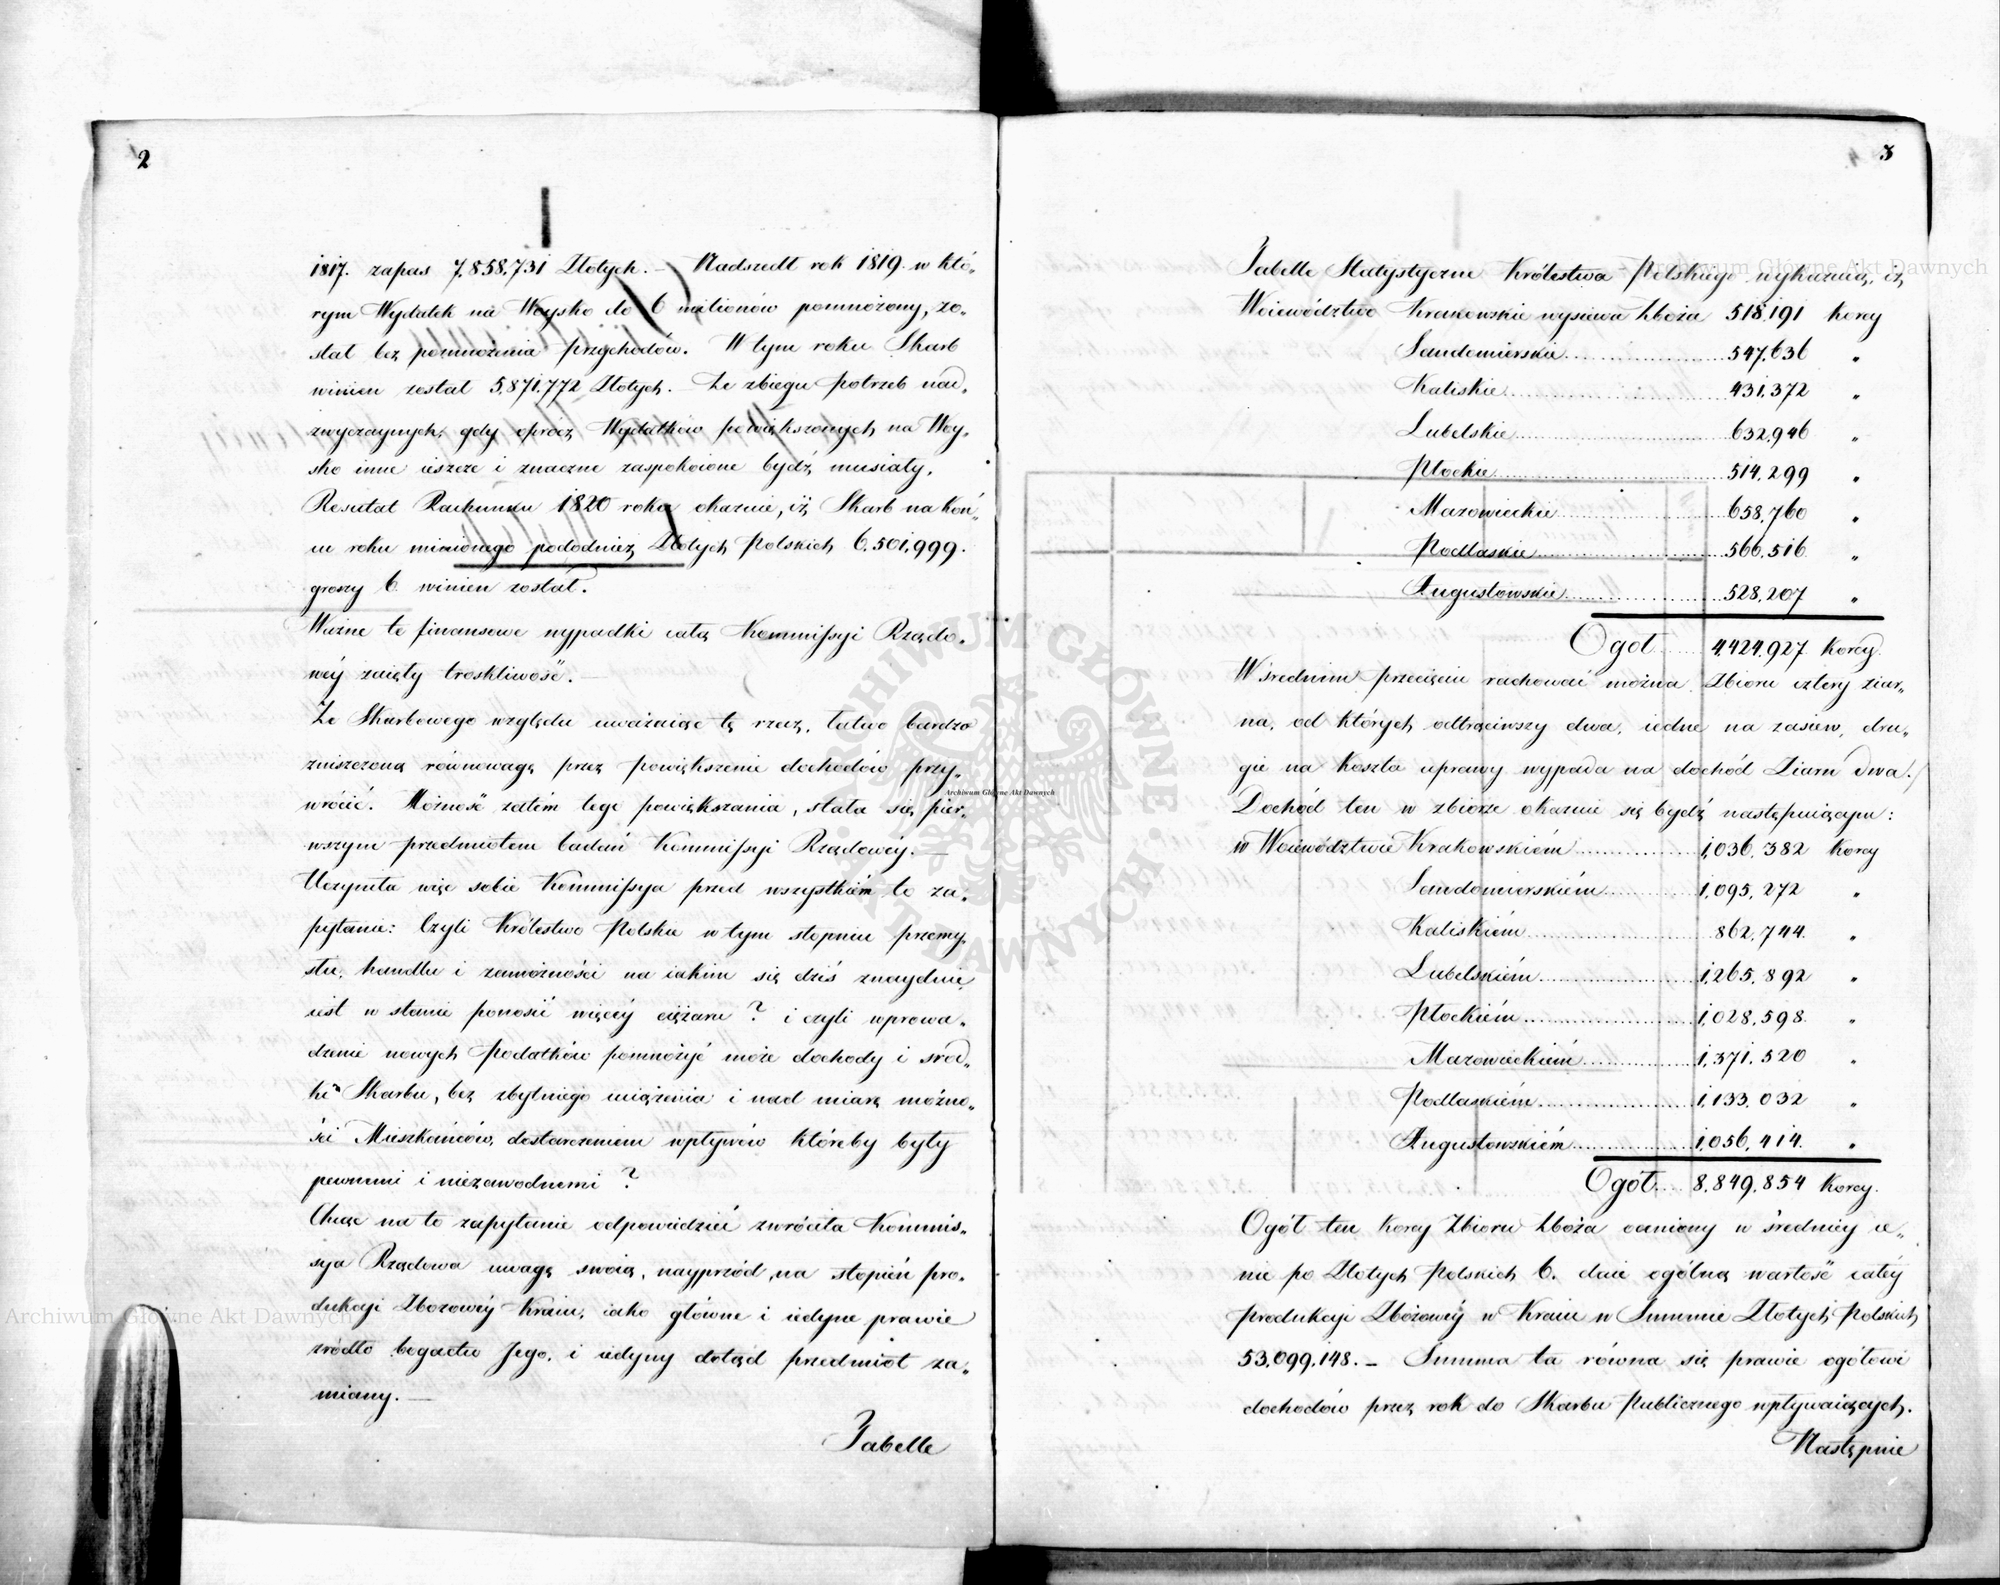 2
1817. zapas 7,858,731 Złotych. — Nadszedł rok 1819. w któ„
rym Wydatek na Woysko do 6 milionów pomnożony, zo„
stał bez pomnożenia przychodów. W tym roku Skarb
winien został 5,871,772 Złotych. Ze zbiegu potrzeb nad„
zwyczaynych, gdy oprócz Wydatków powiększonych na Woy„
sko inne ieszcze i znaczne zaspokoione bydź musiały.
Resultat Rachunku 1820 roku okazuie, iż Skarb na koń„
cu roku minionego Złotych Polskich 6,501,999.
groszy 6 winien został.
Ważne te finansowe wypadki całą Kommissyi Rządo„
wéy zaięły troskliwość. —
Ze Skarbowego względu uważaiąc tę rzecz, łatwo bardzo
zniszczoną równowagę przez powiększenie dochodów przy„
wrócić. Możność zatém tego powiększania, stała się pier„
wszym przedmiotem badań Kommissyi Rządowéy. —
Uczyniła więc sobie Kommissya przed wszystkiém to za„
pytanie: Czyli Królestwo Polskie w tym stopniu przemy„
słu, handlu i zamożności na iakim się dziś znayduie,
iest w stanie ponosić więcéy ciężaru? i czyli wprowa„
dzenie nowych Podatków pomnożyć może dochody i środ„
ki Skarbu, bez zbytniego uciążenia i nad miarę możno„
ści Mieszkańców, dostarczeniem wpływów któreby były
pewnemi i niezawodnemi?
Chcąc na to zapytanie odpowiedzieć zwróciła Kommis„
sya Rządowa uwagę swoią, nayprzód, na stopień pro„
dukcyi Zbozowéy Kraiu, iako główne i iedyne prawie
źródło bogactw Jego, i iedyny dotąd przedmiot za„
miany. —
Tabelle
3
Tabelle Statystyczne Królestwa Polskiego wykazuią, iż
Woiewództwo Krakowskie wysiewa Zboża 518,191 Korcy
Sandomierskie 547,636 „
Kaliskie 431,372 „
Lubelskie 632,946 „
Płockie 514,299 „
Mazowieckie 658,760 „
Podlaskie 566,516 „
Augustowskie 528,207 „
Ogół 4,424,927 Korcy.
W średnim przecięciu rachować można Zbioru cztery ziar„
na, od których odtrąciwszy dwa, iedne na zasiew, dru„
gie na koszta uprawy wypada na dochód Ziarn dwa.
Dochód ten w zbiorze okazuie się bydź następuiącym:
w Woiewództwie Krakowskiém 1,036,382 Korcy
Sandomierskiém 1,095,272 „
Kaliskiém 862,744 „
Lubelskiém 1,265,892 „
Płockiém 1,028,598 „
Mazowieckiém 1,371,520 „
Podlaskiém 1,133,032 „
Augustowskiém 1,056,414 „
Ogół 8,849,854 Korcy.
Ogół ten Korcy Zbioru Zboża oceniony w średniéy ce„
nie po Złotych Polskich 6. daie ogólną wartość całéy
produkcyi Zbożowéy w Kraiu w Summie Złotych Polskich
53,099,148. — Summa ta równa się prawie ogółowi
dochodów przez rok do Skarbu Publicznego wpływaiących.
Następnie
Archiwum Główne Akt Dawnych
Archiwum Główne Akt Dawnych
Archiwum Główne Akt Dawnych
ARCHIWUM GŁÓWNE AKT DAWNYCH